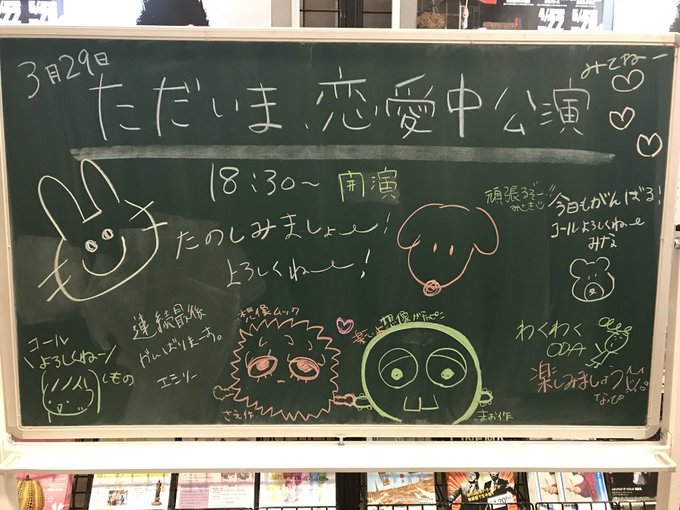 3月29日
みてねー
ただいま、恋愛中公演
18:30～ 開演
たのしみましょーー!
よろしくねーー!
頑張るぞー!!
今日もがんばる!
コールよろしくねー
みな
連続最後
がんばりまーす。
エミリー
コール
よろしくねー
しもの
想像ムック
さえ作
想像ガチャピン
まお作
わくわく
ODA
楽しみましょう
なっぴ